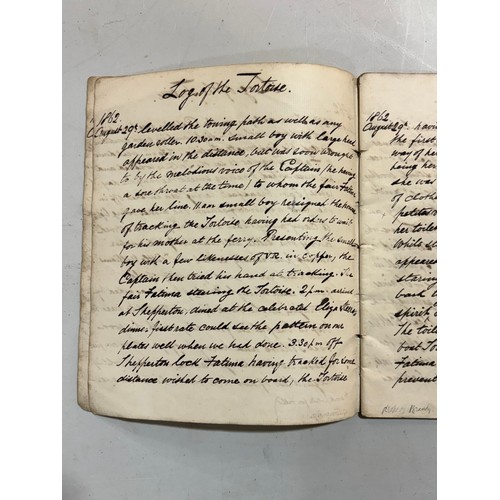 Log of the Tortoise.
1862
August 29th. levelled the towing path as well as any
garden roller. 10.30 am. Small boy with large hat
appeared in the distance, but was soon brought
to by the melodious voice of the Captain (he having
a sore throat at the time) to whom the fair Fatima
gave her line. 11 am small boy resigned the honor
of tracking the Tortoise having had orders to wait
for his mother at the ferry. Presenting the small
boy with a few likenesses of V.R. in copper, the
Captain then tried his hand at tracking. The
fair Fatima steering the Tortoise. 2 p.m. arrived
at Shepperton, dined at the celebrated
dinner first rate could see the pattern on our
plates well when we had done. 3.30 pm off
Shepperton lock Fatima having tracked for some
distance wished to come on board, the Tortoise
1862
August 29th. having
the first
way of her
being her
she was
of clothes
petites
her toilet
While s
appeared
staring
board
spirit
The toilet
boat To
Fatima
prevent